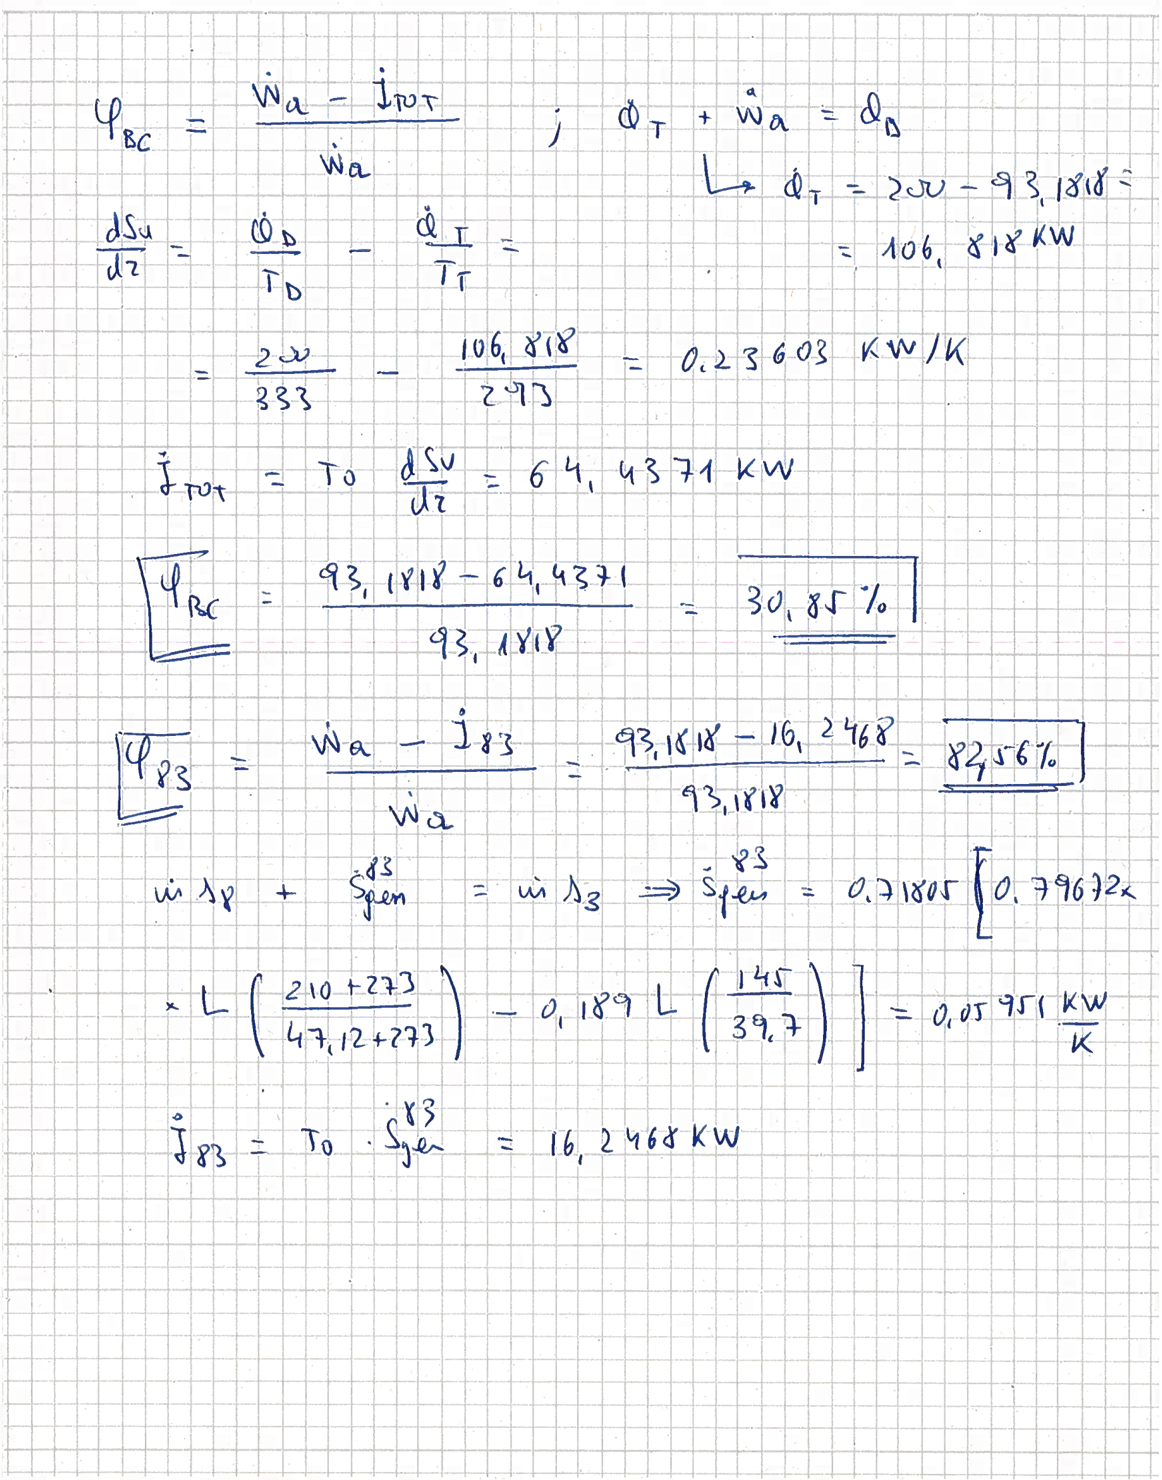 φ_BC = (Ẇa − İ_TOT) / Ẇa ; Q̇_T + Ẇa = Q_D
↳ Q̇_T = 200 − 93,1818 =
dSu/dτ = Q̇_D/T_D − Q̇_T/T_T =
= 106,818 KW
= 200/333 − 106,818/293 = 0.23603 KW/K
İ_TOT = To dSu/dτ = 64,4371 KW
φ_BC = (93,1818 − 64,4371) / 93,1818 = 30,85 %
φ_83 = (Ẇa − İ_83) / Ẇa = (93,1818 − 16,2468) / 93,1818 = 82,56%
ṁ s8 + Ṡgen^83 = ṁ s3 ⇒ Ṡgen^83 = 0.71805 [ 0.79672 ×
× L ( (210+273) / (47,12+273) ) − 0,189 L ( 145 / 39,7 ) ] = 0,05951 KW/K
İ_83 = To · Ṡgen^83 = 16,2468 KW